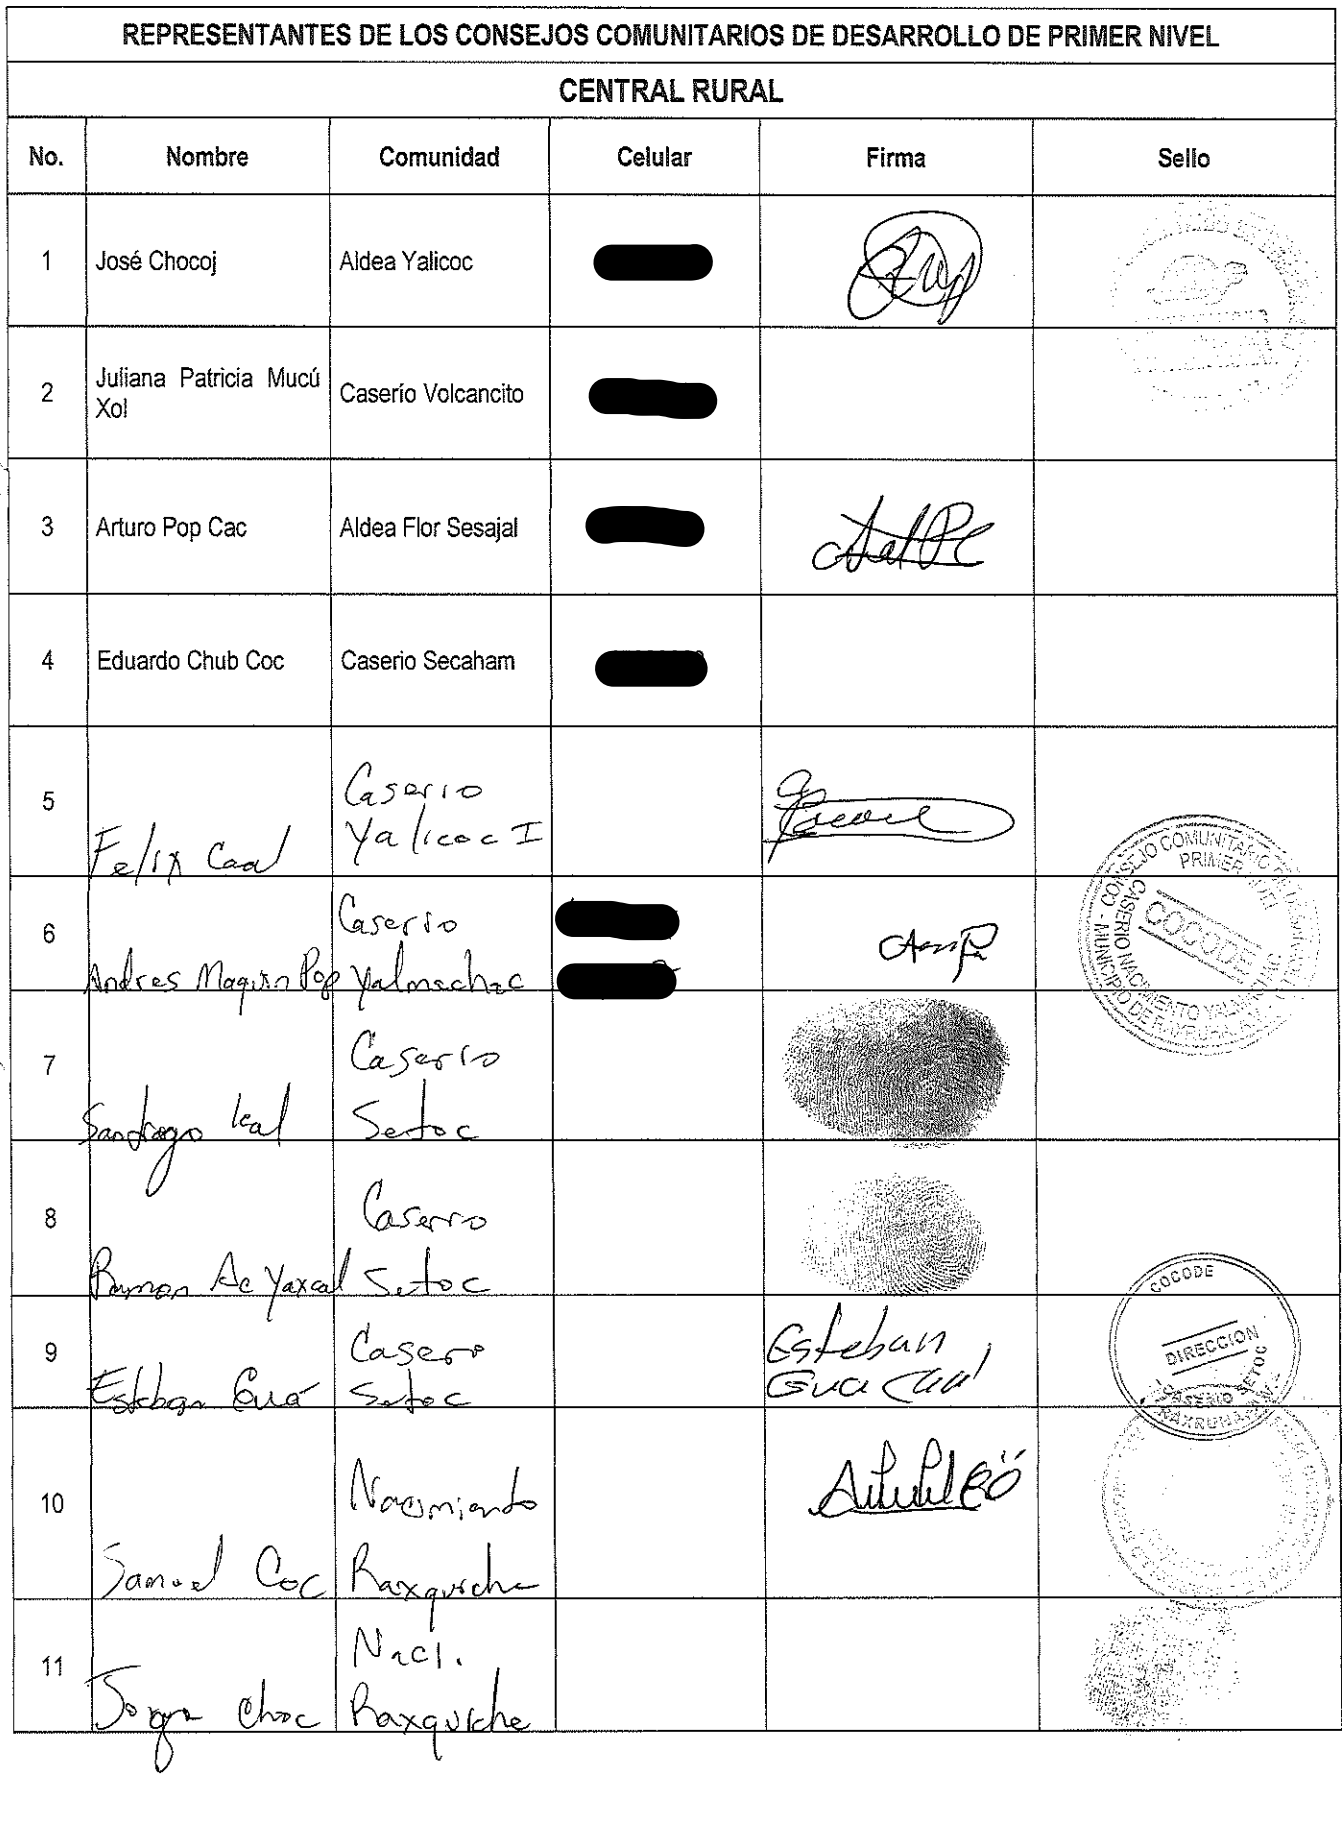 REPRESENTANTES DE LOS CONSEJOS COMUNITARIOS DE DESARROLLO DE PRIMER NIVEL
CENTRAL RURAL
No. Nombre Comunidad Celular Firma Sello
1 José Chocoj Aldea Yalicoc
2 Juliana Patricia Mucú
Xol Caserío Volcancito
3 Arturo Pop Cac Aldea Flor Sesajal
4 Eduardo Chub Coc Caserio Secaham
5 Felix Caal Caserio
Yalicoc I
6 Andres Maquin Pop Caserio
CONSEJO COMUNITARIO DE DESARROLLO
PRIMER NIVEL
COCODE
CASERIO NACIMIENTO
MUNICIPIO DE RAXRUHA, A.V.
7 Santiago Caserio
Setoc
8 Ramon Ac Yaxcal Caserio
Setoc
9 Esteban Cuá Caserio
Setoc
Esteban
COCODE
DIRECCION
CASERIO SETOC
RAXRUHA, A.V.
10 Samuel Coc Nacimiento
Raxquiche
11 Jorge Choc Naci.
Raxquiche